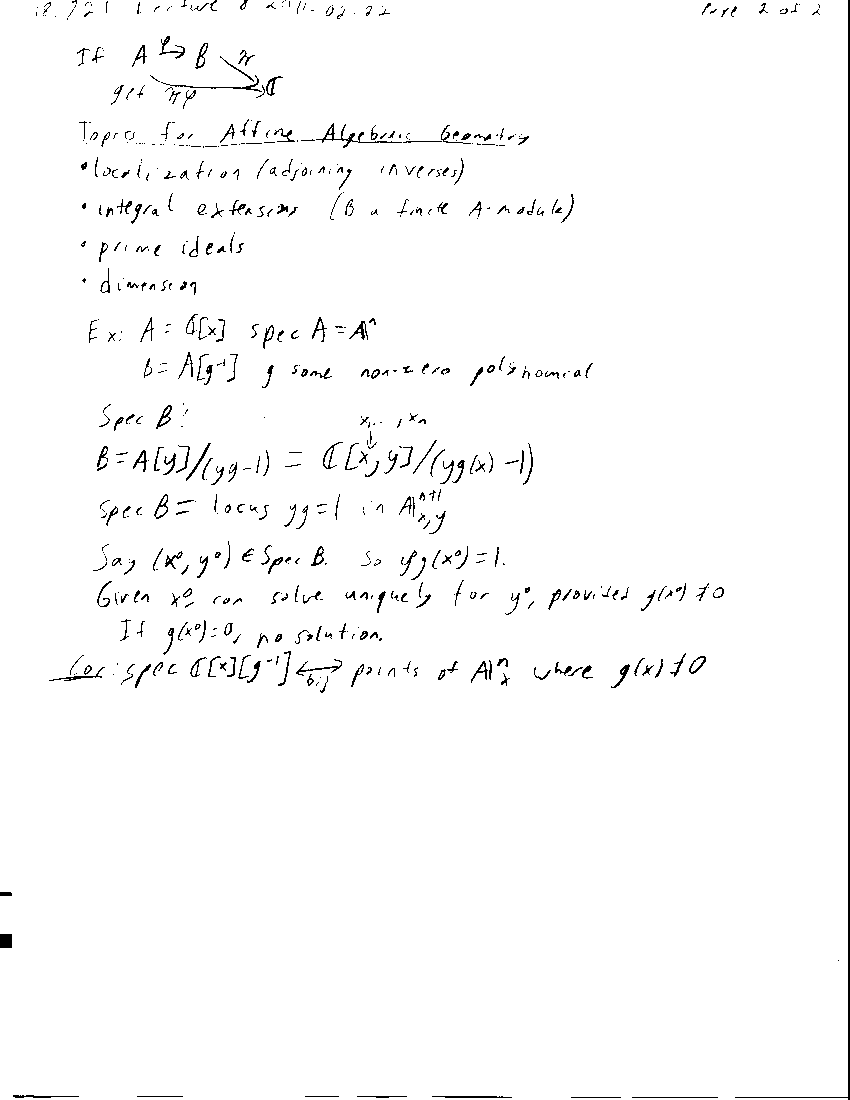 18.721 Lecture 8 2011-02-22 Page 2 of 2
If A →φ B π
get πφ → ℂ
Topics for Affine Algebraic Geometry
• localization (adjoining inverses)
• integral extensions (B a finite A-module)
• prime ideals
• dimension
Ex: A = ℂ[x] spec A = 𝔸ⁿ
B = A[g⁻¹] g some non-zero polynomial
Spec B?
x₁, ..., xₙ
B = A[y]/(yg-1) = ℂ[x, y]/(yg(x) -1)
Spec B = locus yg=1 in 𝔸ⁿ⁺¹ x,y
Say (x⁰, y⁰) ∈ Spec B. So y⁰g(x⁰) = 1.
Given x⁰, can solve uniquely for y⁰, provided g(x⁰) ≠ 0
If g(x⁰)=0, no solution.
Cor: spec ℂ[x][g⁻¹] ↔ bij points of 𝔸ⁿₓ where g(x) ≠ 0